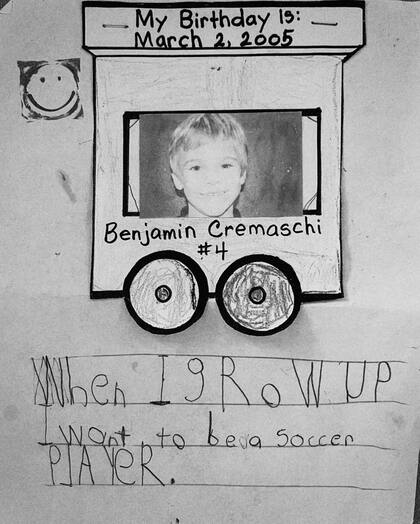 My Birthday Is:
March 2, 2005
Benjamin Cremaschi
#4
When I gRoW UP
I want to be a soccer
PlAYeR.